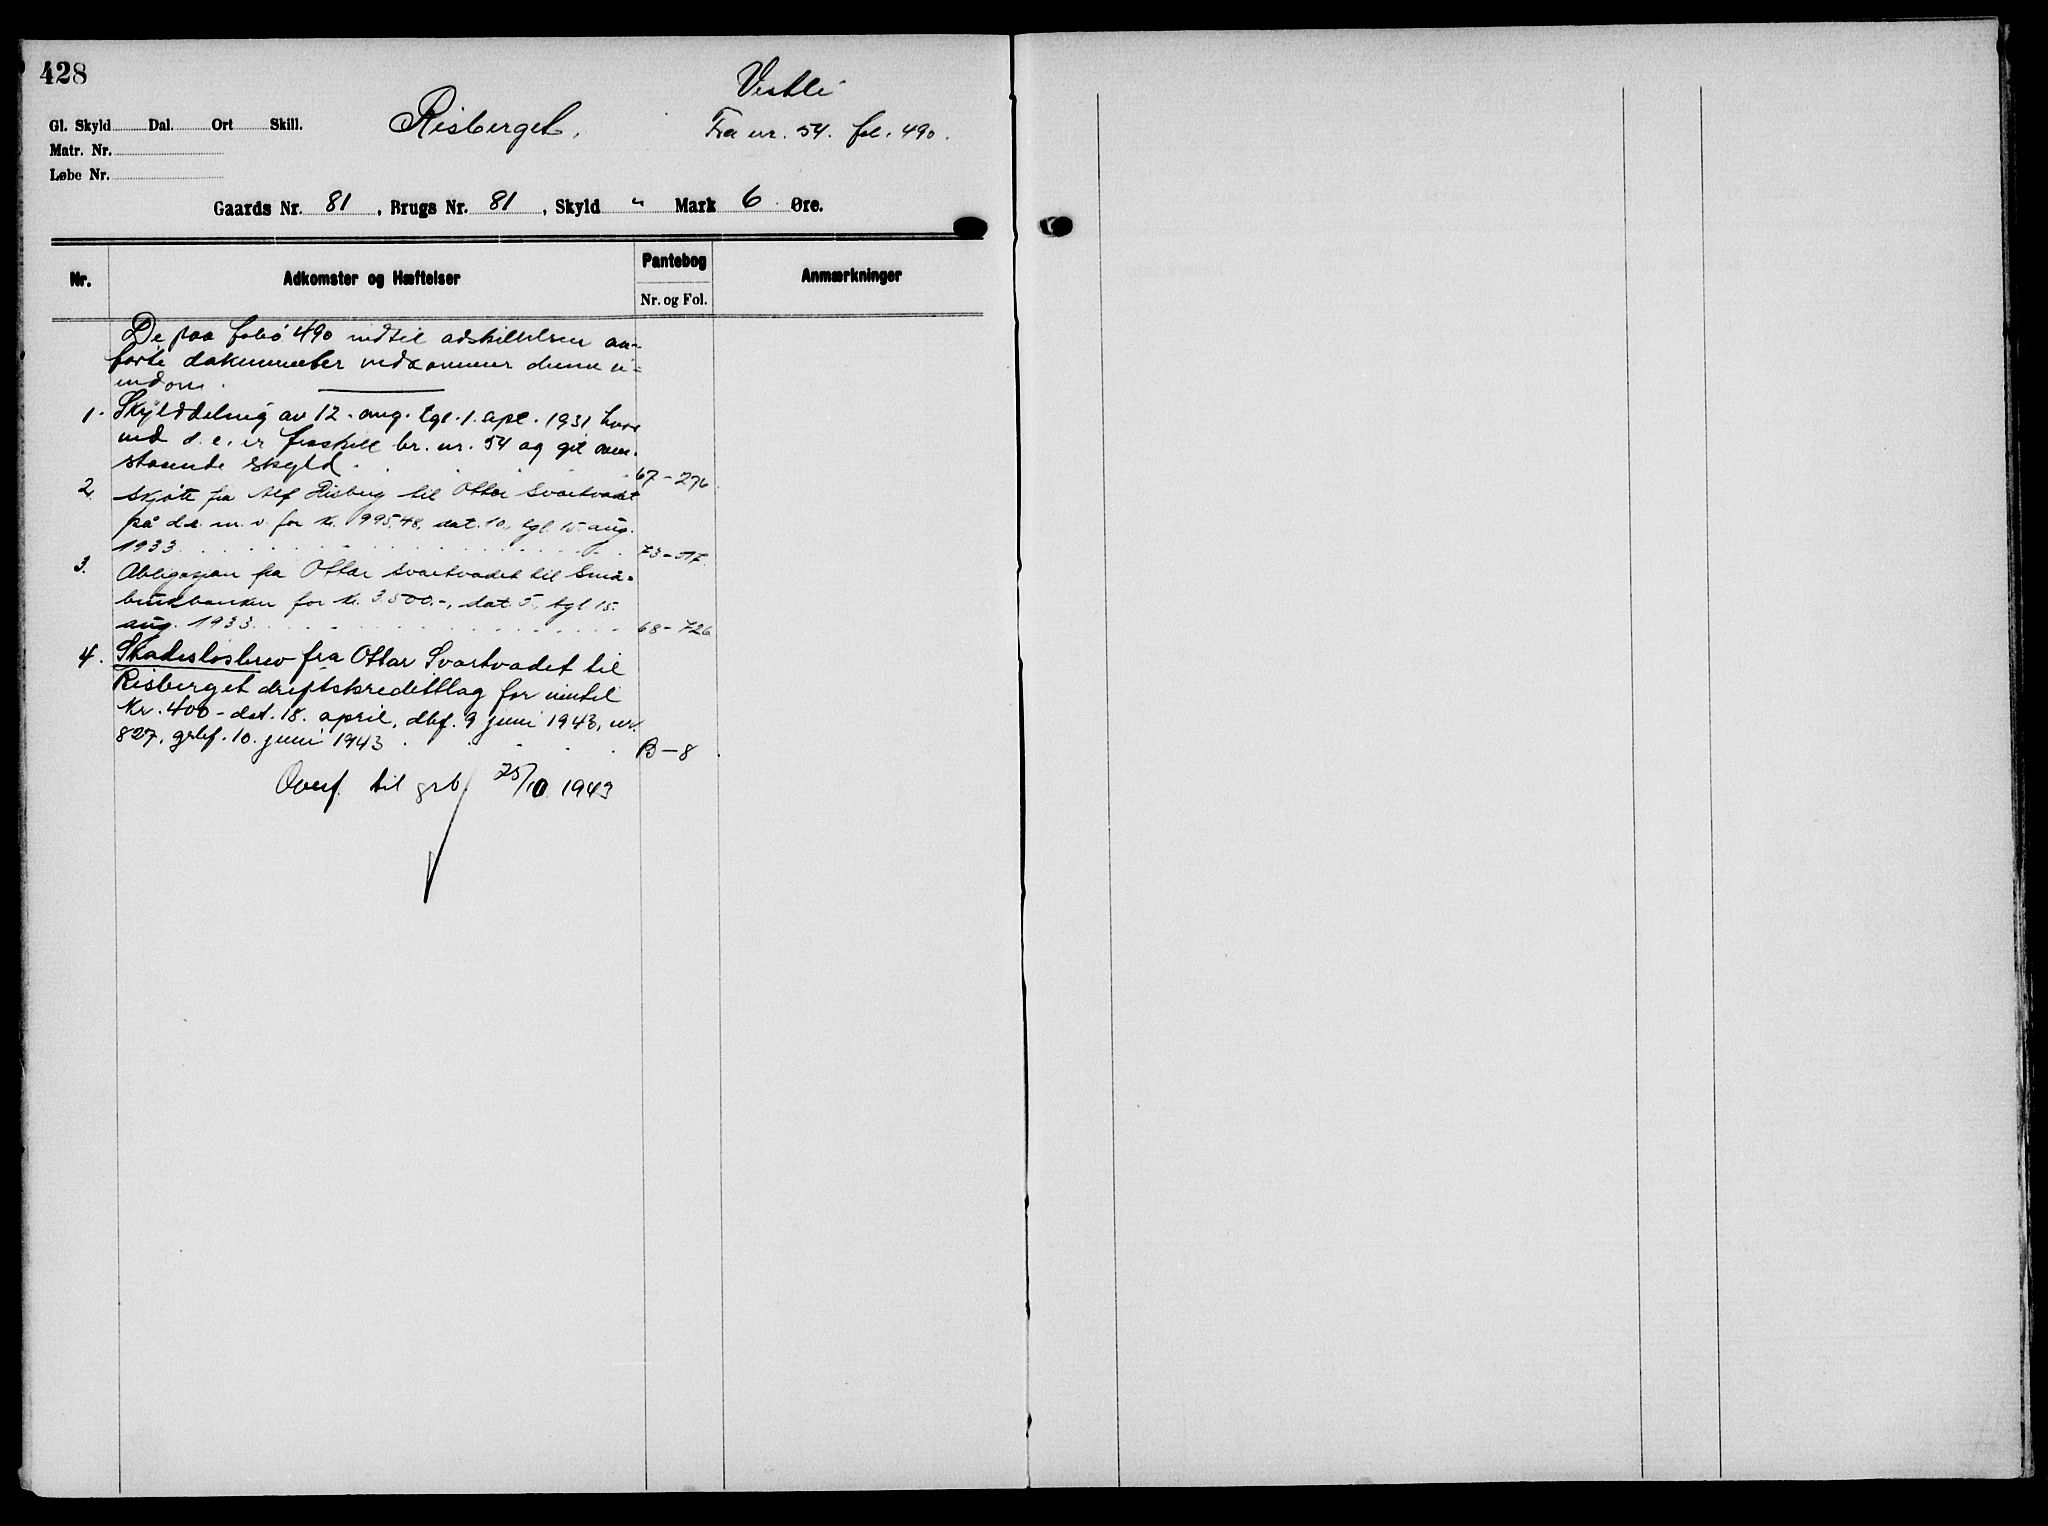 428
Vestli
Risberget.
Fra nr. 54. fol. 490.
Gl. Skyld Dal. Ort Skill.
Matr. Nr.
Løbe Nr.
Gaards Nr. 81, Brugs Nr. 81, Skyld " Mark 6 Øre.
Nr. Adkomster og Hæftelser Pantebog Anmærkninger
Nr. og Fol.
De paa folio 490 indtil adskillelsen an-
førte dokumenter vedkommer denne ei-
endom.
1. Skylddeling av 12. aug. tgl. 1. spt. 1931 hvor
ved d. e. er fraskilt br. nr. 54 og git oven-
staaende skyld. 67-276
2. Skjøte fra Alf Risberg til Ottar Svartvadet
på d.e. m.v. for kr. 995,48, dat. 10., tgl. 15. aug.
1933. 73-517.
3. Obligasjon fra Ottar Svartvadet til Små-
brukbanken for kr. 3.500.-, dat. 5., tgl. 15.
aug. 1933. 68-726
4. Skadesløsbrev fra Ottar Svartvadet til
Risberget driftskredittlag for inntil
Kr. 400- dat. 18. april, dbf. 9 juni 1943, nr.
827, grbf. 10. juni 1943. B-8
Overf. til grb 25/10 1943